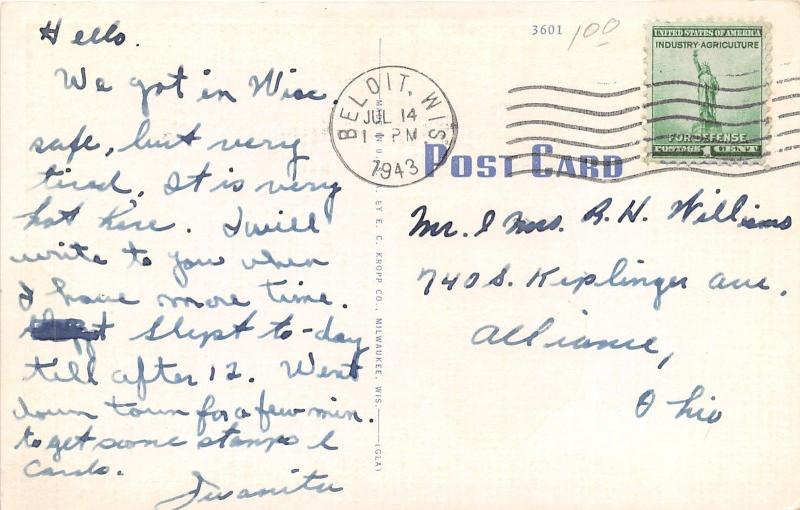 Hello.
We got in Wisc.
safe, but very
tired. It is very
hot here. I will
write to you when
I have more time.
Slept to-day
till after 12. Went
down town for a few min.
to get some stamps &
cards.
Juanita
3601
1.00
BELOIT, WIS.
JUL 14
1 PM
1943
UNITED STATES OF AMERICA
INDUSTRY·AGRICULTURE
FOR DEFENSE
POSTAGE 1 CENT
POST CARD
BY E. C. KROPP CO., MILWAUKEE, WIS.
(GLA)
Mr. & Mrs. R. H. Williams
740 S. Kiplinger Ave.
Alliance,
Ohio